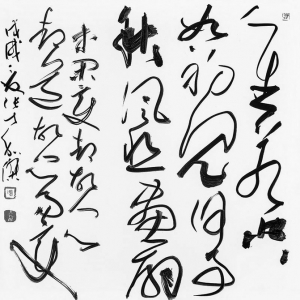 人生若只
如初见何事
秋风悲画扇
等闲变却故人心
却道故人心易变
戊戌